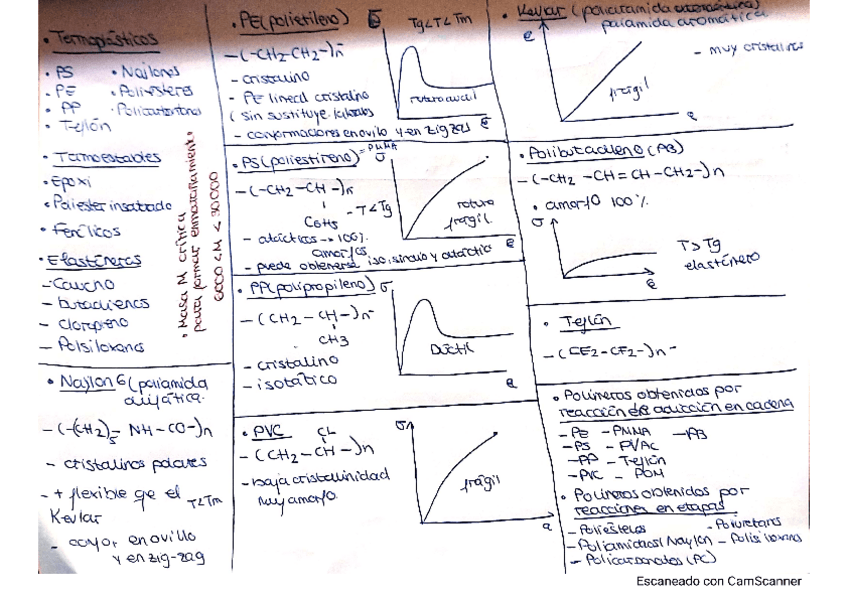 • Termoplásticos
• PS • Nailones
• PE • Poliésteres
• PP • Policarbonatos
• Teflón
• Termoestables
• Epoxi
• Poliester insaturado
• Fenólicos
• Elastómeros
- Caucho
- butadienos
- cloropreno
- Polisiloxanos
• Masa M crítica
para formar enmarañamiento
6000 < M < 30.000
• Naylon 6 (poliamida
alifática.
-(-(CH2)5- NH - CO-)n
- cristalinos polares
- + flexible qe el
T<Tm
Kevlar
- confor. en ovillo
y en zig-zag
• PE (polietileno)
σ Tg<T<Tm
-(-CH2-CH2-)n-
- cristalino
- PE lineal cristalino
( sin sustituye. laterales
- conformaciones en ovillo y en zigzag
rotura ductil
e
• PS (poliestireno) = PMMA
σ
-(-CH2 - CH -)n-
C6H5
- T<Tg
- atácticos → 100%
amorfos
- puede obtenerse iso, sindio y atáctico
rotura
frágil
e
• PP (polipropileno) σ
-(CH2 - CH-)n-
CH3
- cristalino
- isotático
Ductil
e
• PVC
CL
-(CH2 - CH-)n
- baja cristalinidad
muy amorfo
σ
frágil
• Kevlar (poliaramida
poliamida aromática
- muy cristalinos
frágil
• Polibutadieno (PB)
-(-CH2 - CH = CH - CH2-)n
• amorfo 100%
σ
T>Tg
elastómero
e
• Teflón
-(CF2 - CF2-)n-
• Polimeros obtenidos por
reacción de adicción en cadena
- PE - PMMA - PB
- PS - PVAC
- PP - Teflón
- PVC - POM
• Polimeros obtenidos por
reacciones en etapas
- Poliésteres - Poliuretanos
- Poliamidas / Naylon - Polisiloxanos
- Policarbonatos (PC)
Escaneado con CamScanner